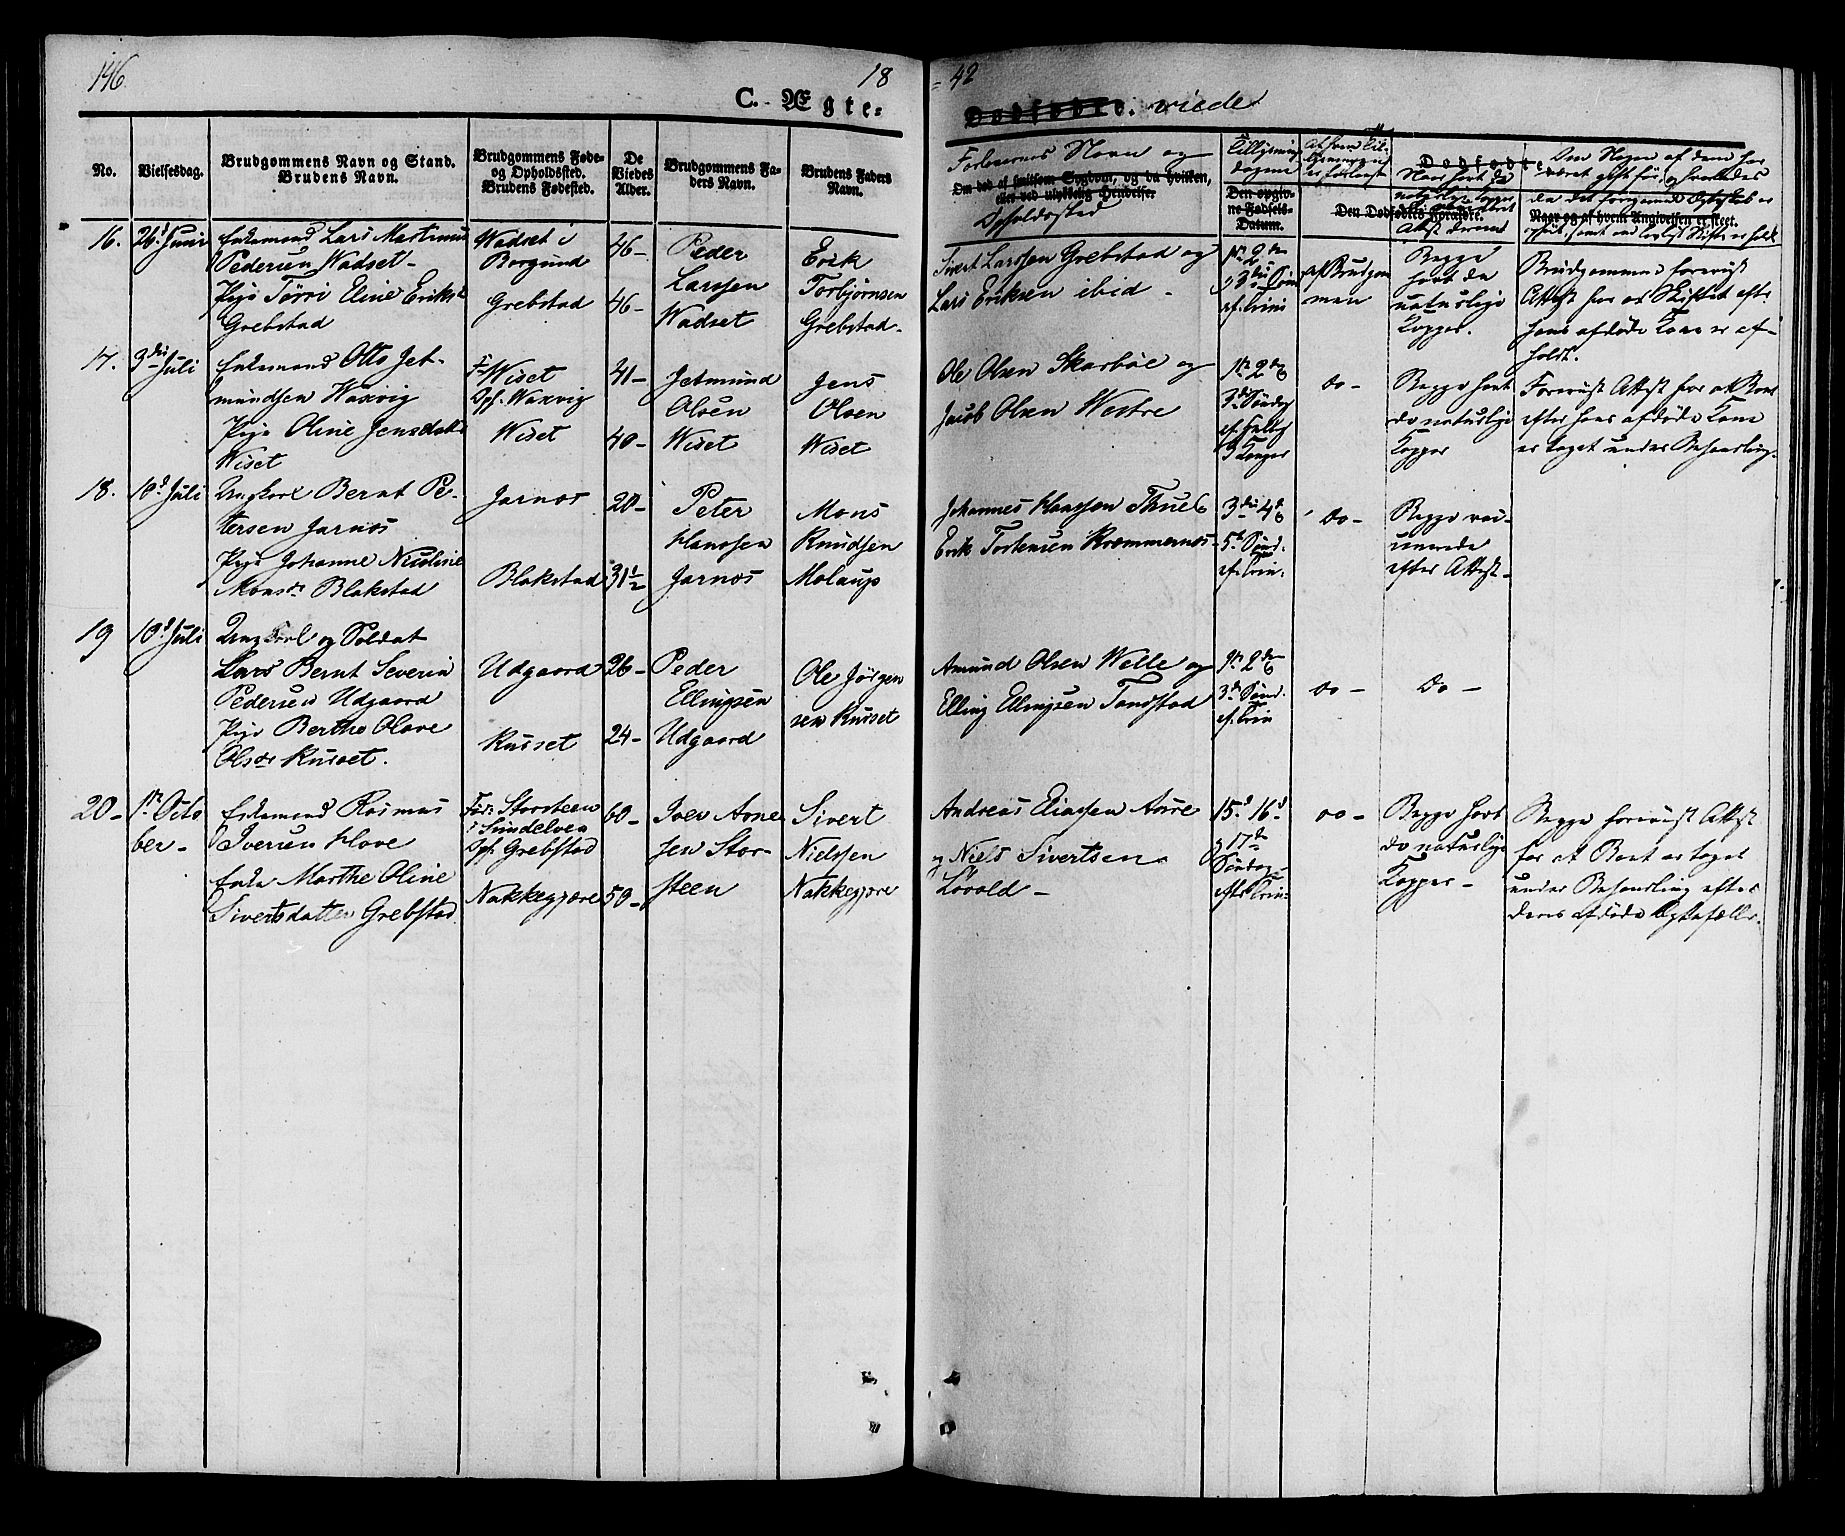 146
18
= 42
C. Ægte=
Dødfødte. viede
No.
Vielsesdag.
Brudgommens Navn og Stand.
Brudens Navn.
Brudgommens Føde-
og Opholdssted.
Brudens Fødested.
De
Viedes
Alder.
Brudgommens Fa-
ders Navn.
Brudens Faders
Navn.
Forlovernes Navn og
Om død af smitsom Sygdom, og da hvilken,
eller ved ulykkelig Hendelse.
Opholdssted
Den opgiv-
ne Fødsels-
Datum.
Den Dødfødtes Forældre.
Naar og af hvem Angivelsen er skeet.
16.
26d Juni
Enkemand Lars Martinus
Pedersen Wadset-
Pige Sørri Eline Eriksd
Grebstad
Wadset i
Borgund
Grebstad
46-
46-
Peder
Larssen
Wadset
Erik
Torbjørnsen
Grebstad-
Sivert Larssen Grebstad og
Lars Eriksen ibid -
1st 2den
af Brudgom
men
Begge
havt de
naturlige
Kopper.
Brudgommen foreviist
Attest for at Skiftet efter
hans afdøde Kone er af-
holdt.
17.
3die Juli
Enkemand Otto Jet-
mundsen Waxvig
Pige Oline Jensdatter
Wiset
F. Wiset
Oph. Waxvig
Wiset
41-
40-
Jetmund
Olsen
Wiset
Jens
Olsen
Wiset
Ole Olsen Skarbøe og
Jacob Olsen Westre
do-
Begge havt
de naturlige
Kopper
Foreviist Attest for at Boet
efter hans afdøde Kone
er taget under Behandling-
18.
10d Juli
Ungkarl Bernt Pe-
tersen Jarnos
Pige Johanne Nicoline
Monsdr Blakstad
Jarnos
Blakstad
20-
31½
Peter
Hanssen
Jarnos
Mons
Knudsen
Molaup
Johannes Hanssen Thue og
Erik Torstensen Kræmmernæs-
3die 4de
5te Sønd.
ef. Trin.
do-
Begge vac-
cinerede
efter Attest-
19
10d Juli
Ungkarl og Soldat
Lars Bernt Severin
Pedersen Udgaard
Pige Berthe Olave
Olsdr Kusset.
Udgaard
Kusset
26-
24-
Peder
Ellingsen
Udgaard
Ole Jørgen
sen Kusset
Amund Olsen Welle og
Elling Ellingsen Tandstad
1st 2den
3die Sønd.
ef. Trin
do -
Do -
20-
1ste Octo
ber-
Enkemand Rasmus
Iversen Hove
Enke Marthe Oline
Sivertsdatter Grebstad
Fød: Storsteen
i Sundelven
Oph. Grebstad
Nakkegjære
60-
50-
Iver Arne
sen Stor-
steen
Sivert
Nielssen
Nakkegjære
Andreas Eliassen Aure
og Niels Sivertsen
Løvold -
15d 16d
og 17de
Søndag
efter Trin:
do -
Begge havt
de naturlige
Kopper-
Begge foreviist Attest
for at Boet er taget
under Behandling efter
deres afdøde Ægtefæller.